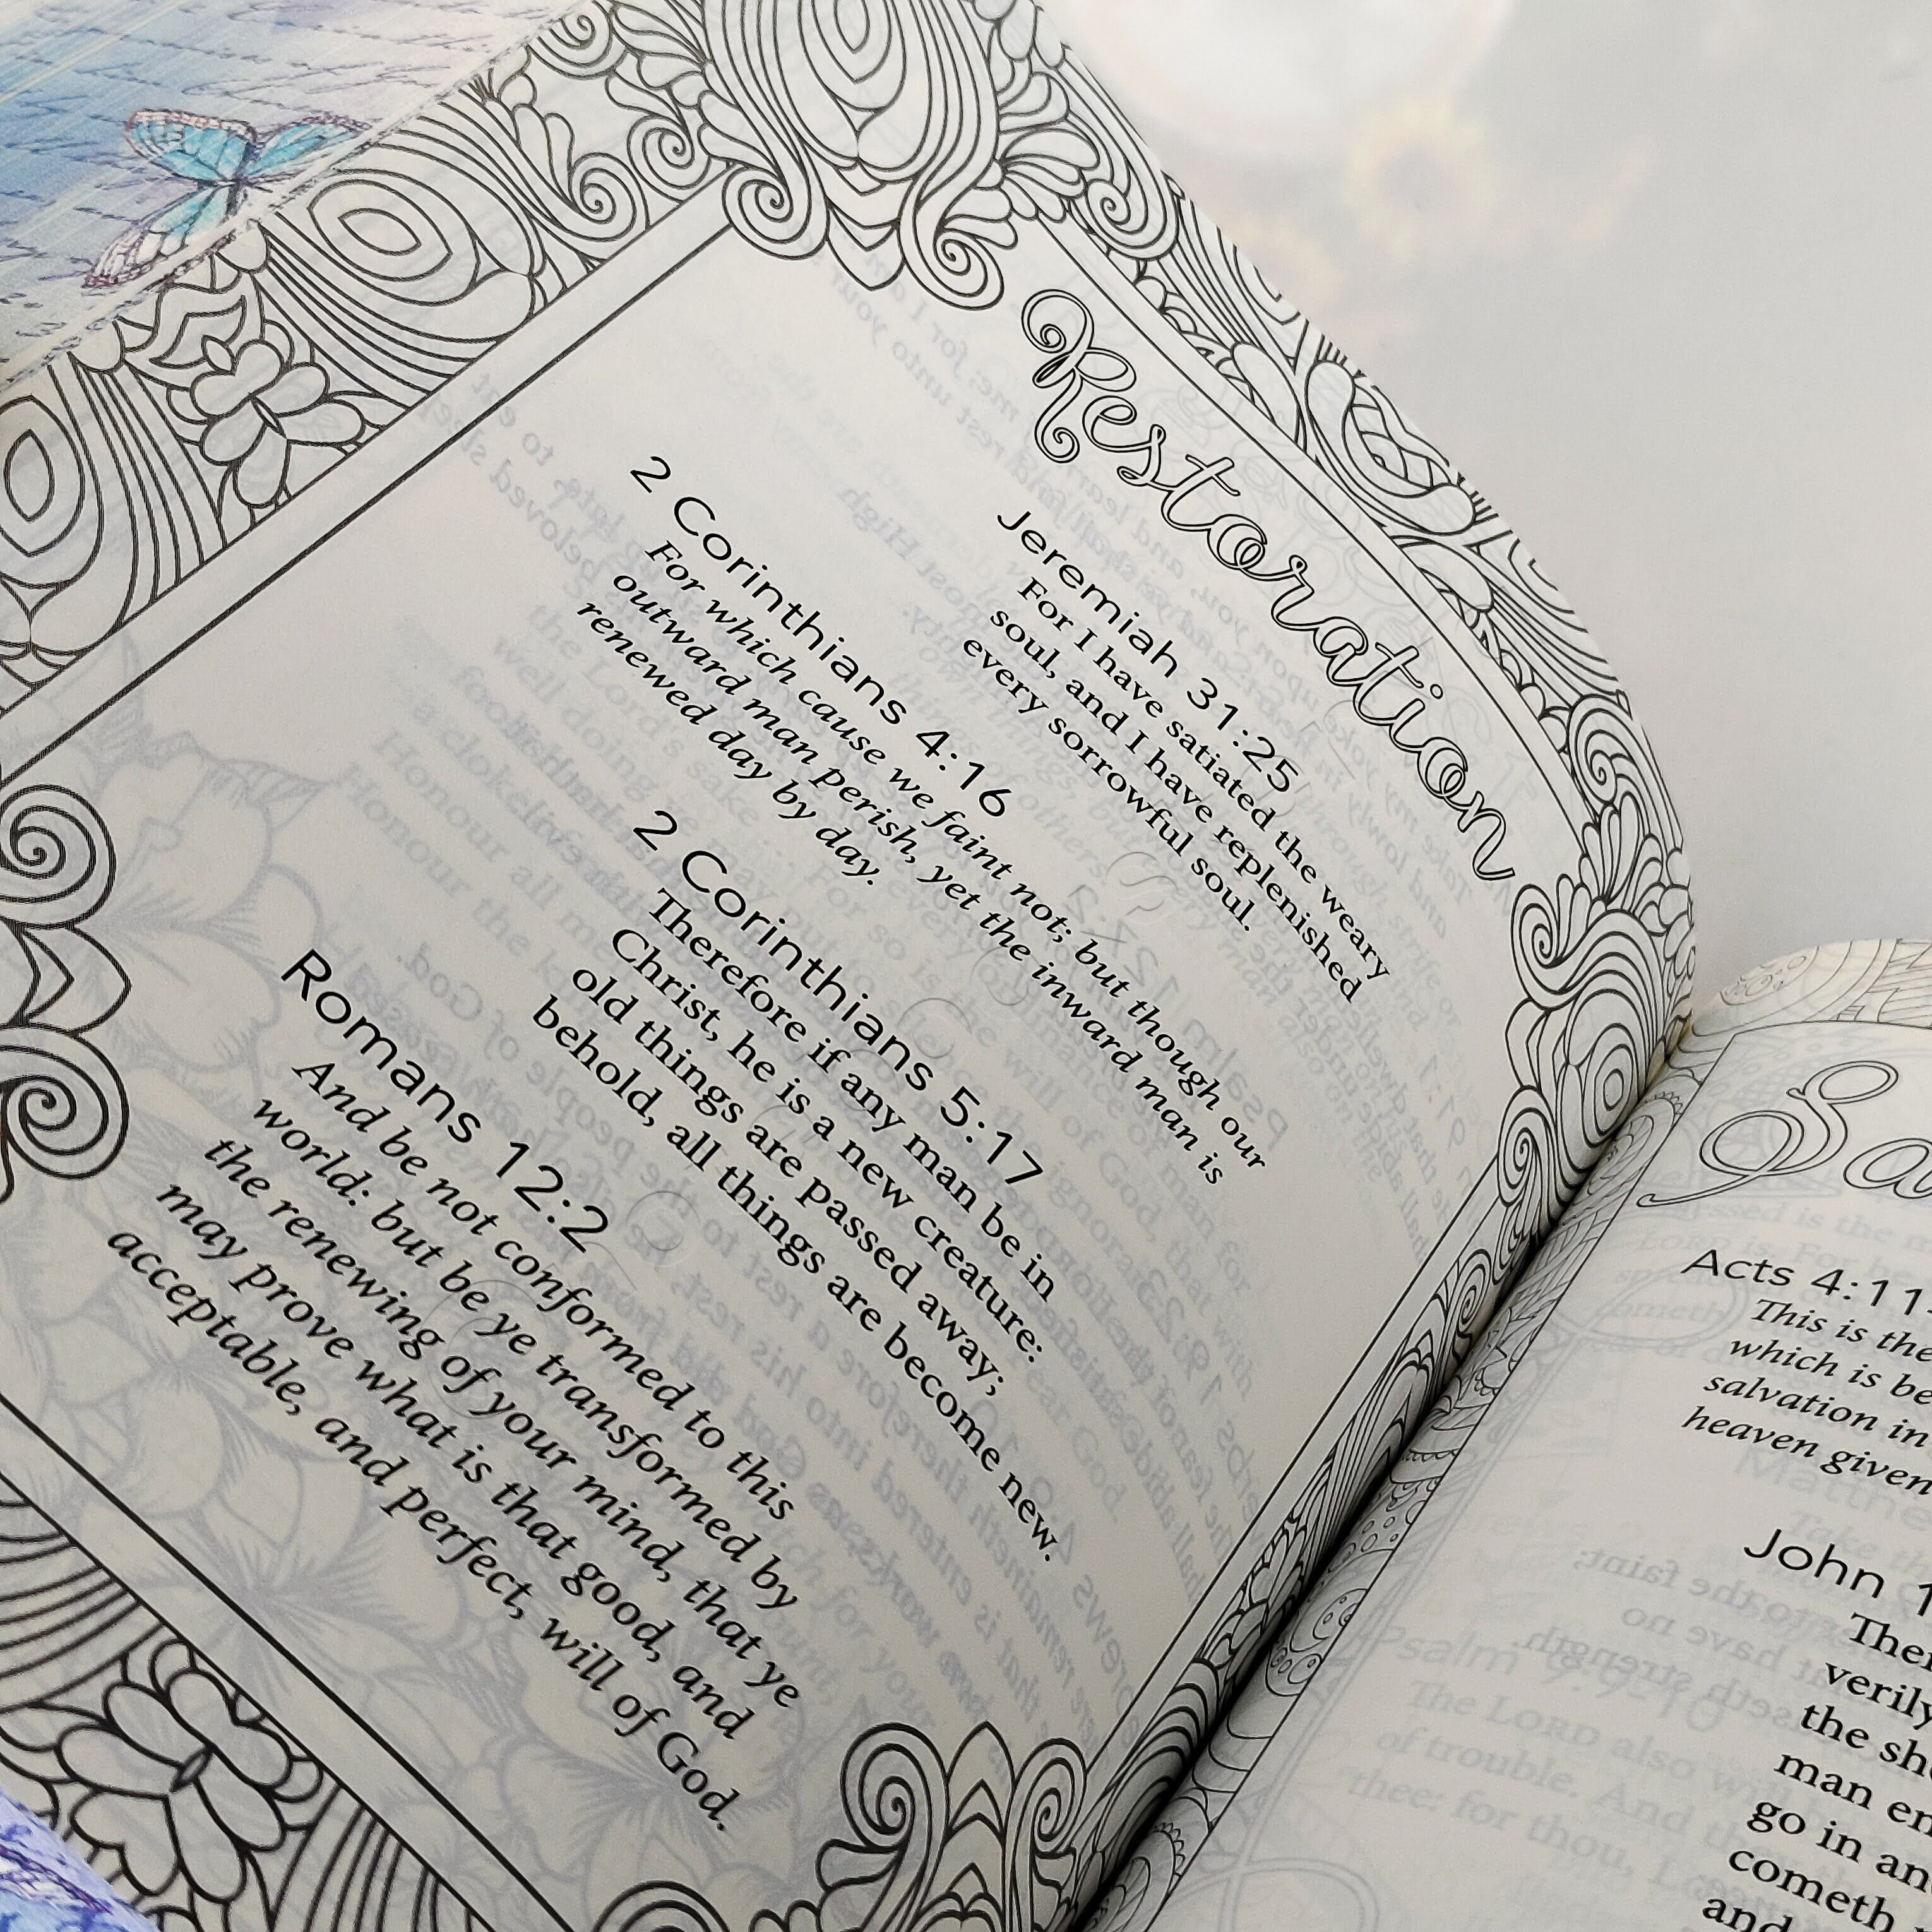 Restoration
Jeremiah 31:25
For I have satiated the weary
soul, and I have replenished
every sorrowful soul.
2 Corinthians 4:16
For which cause we faint not; but though our
outward man perish, yet the inward man is
renewed day by day.
2 Corinthians 5:17
Therefore if any man be in
Christ, he is a new creature:
old things are passed away;
behold, all things are become new.
Romans 12:2
And be not conformed to this
world: but be ye transformed by
the renewing of your mind, that ye
may prove what is that good, and
acceptable, and perfect, will of God.
Acts 4:11
This is the
which is be
salvation in
heaven given
John 1
verily
the
man en
go in an
cometh
and
Psalm 9:9-10
The LORD also
of trouble. And
thee: for thou,